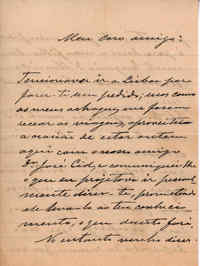 Meu caro amigo:
Tencionava ir a Lisboa por
fazer te um pedido, mas como
os meus achaques me fazem
recear as viagens, aproveitei
a occasião de estar ontem
aqui com o nosso amigo
Dr. José Cid, e communiquei-lhe
o que eu projetava ir pessoal
mente dizer-te, promettendo
elle leval-o ao teu conheci
mento, o que decerto fará.
No entanto venho dizer-